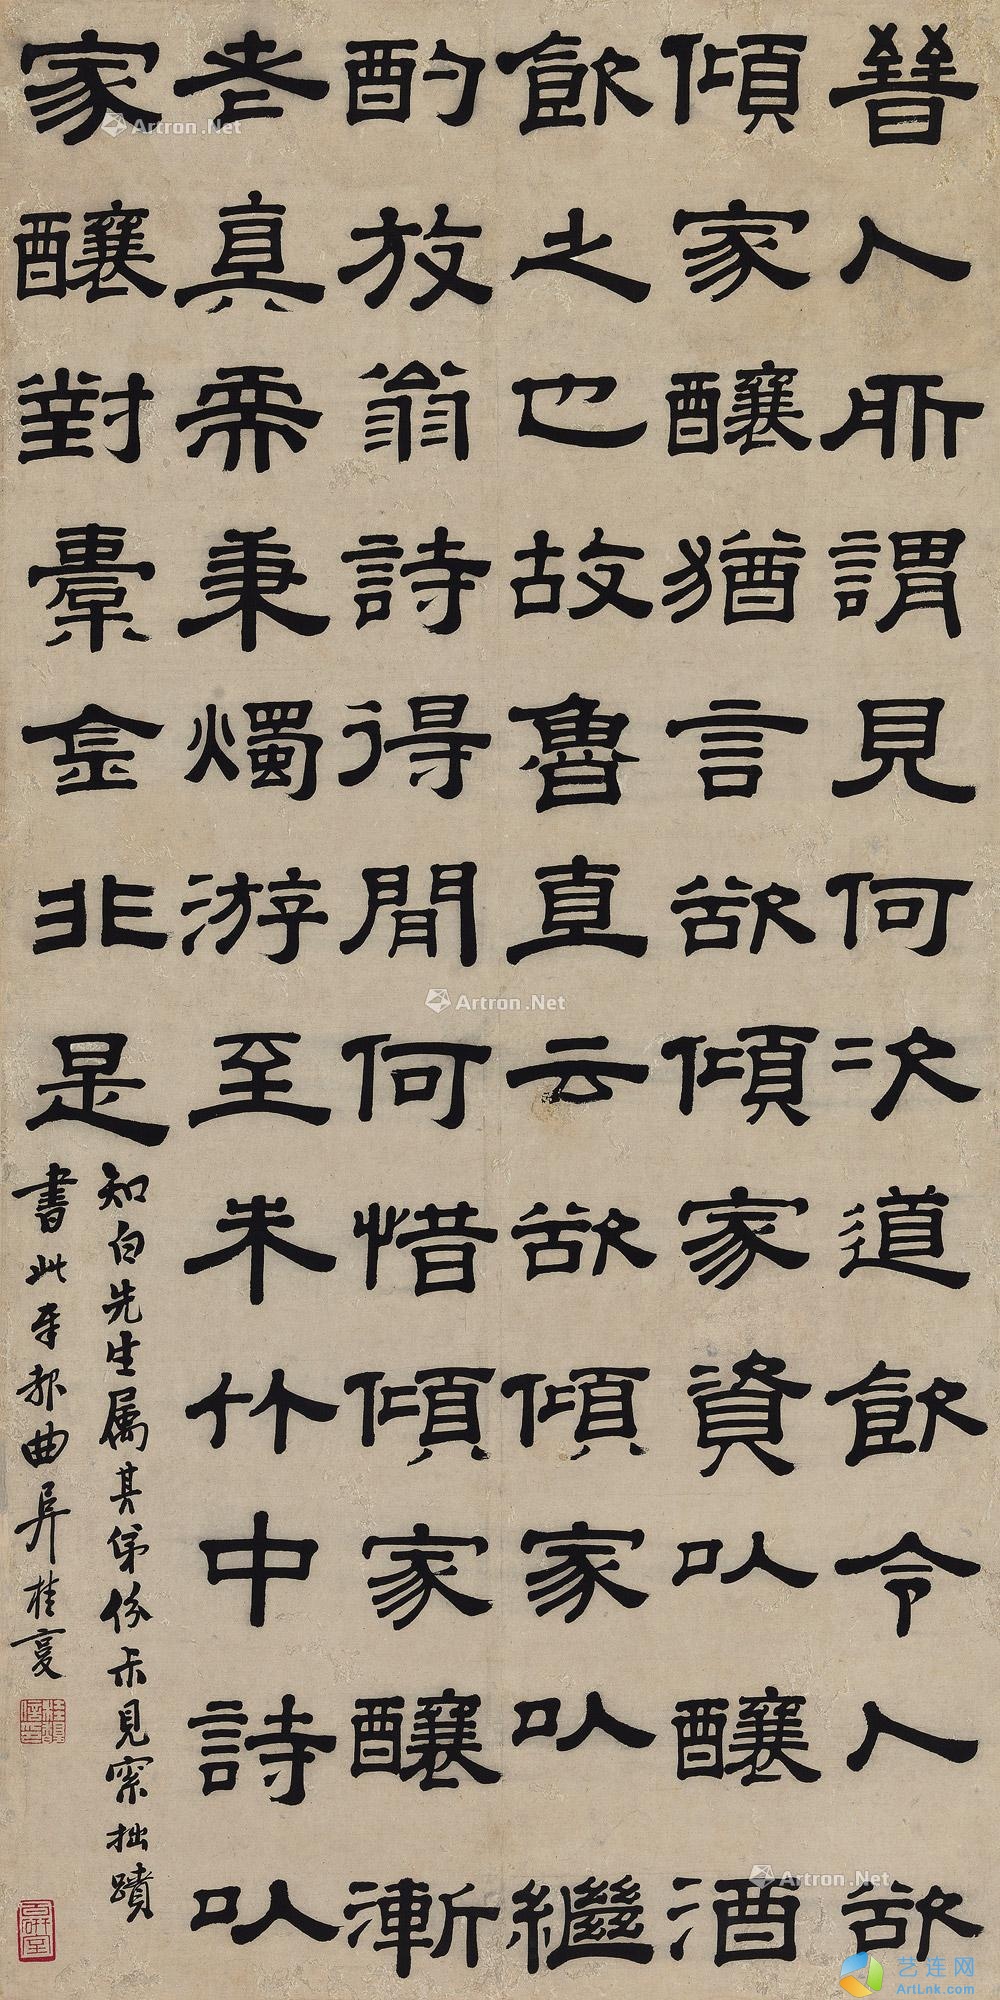 晉人所謂見何次道飲令人欲
傾家釀猶言欲傾家資以釀酒
飲之也故魯直云欲傾家以繼
酌放翁詩得閒何惜傾家釀漸
老真需秉燭游至朱竹中詩以
家釀對橐金非是
知白先生属其弟份尗見索拙蹟
書此奉報曲阜桂馥
Artron.Net
Artron.Net
Artron.Net
艺连网
ArtLnk.com